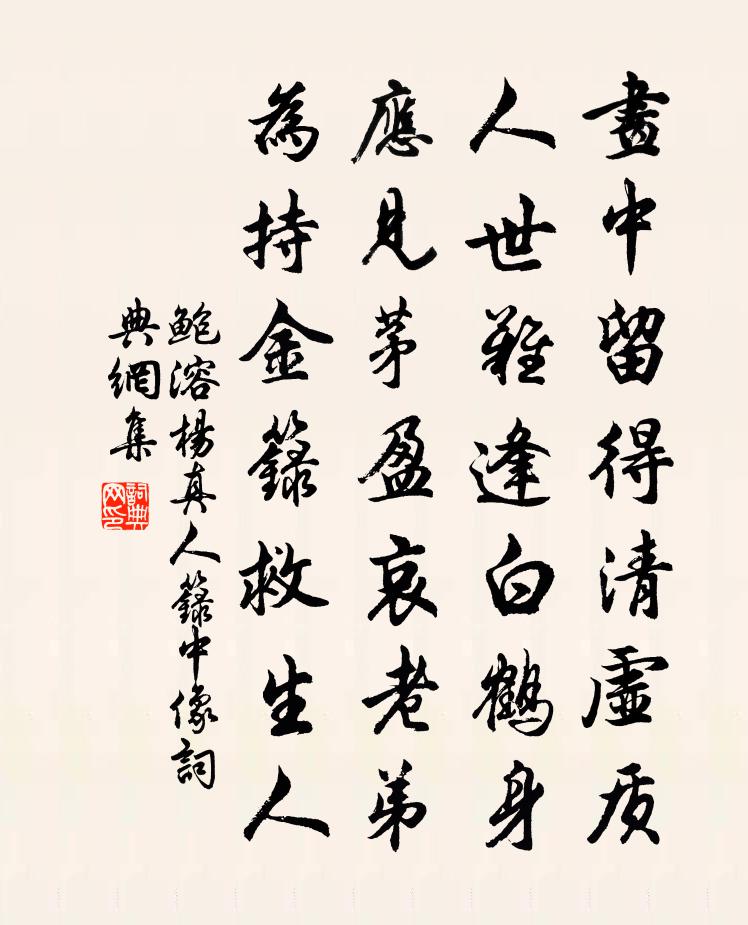 畫中留得清虛质
人世難逢白鶴身
應見茅盈哀老弟
為持金籙救生人
鲍溶楊真人籙中像詞
典網集
詞典
网印